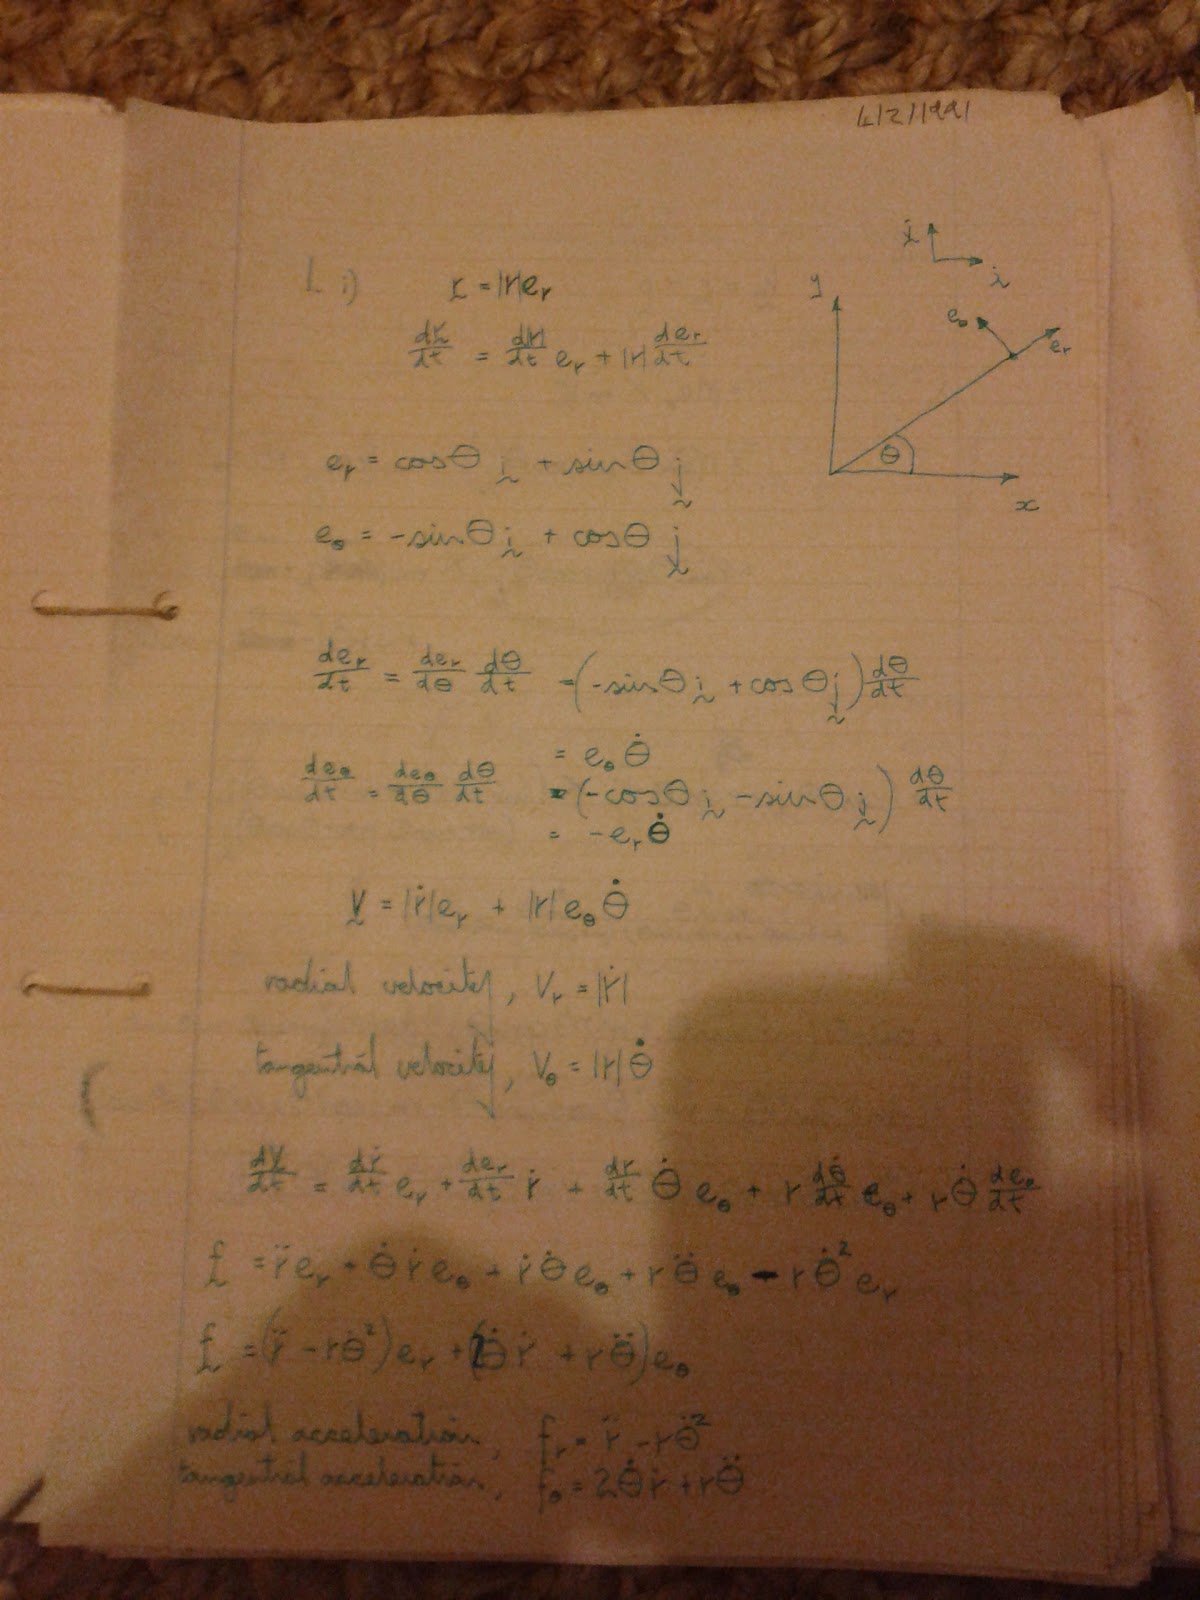 4/2/1991
1. i) r = |r|e_r
dr/dt = d|r|/dt e_r + |r| de_r/dt
j
i
y
e_θ
e_r
θ
x
e_r = cosθ i + sinθ j
e_θ = -sinθ i + cosθ j
de_r/dt = de_r/dθ dθ/dt = (-sinθ i + cosθ j) dθ/dt
= e_θ θ̇
de_θ/dt = de_θ/dθ dθ/dt = (-cosθ i - sinθ j) dθ/dt
= -e_r θ̇
V = |ṙ|e_r + |r|e_θ θ̇
radial velocity, V_r = |ṙ|
tangential velocity, V_θ = |r|θ̇
dV/dt = dṙ/dt e_r + de_r/dt ṙ + dr/dt θ̇ e_θ + r dθ̇/dt e_θ + rθ̇ de_θ/dt
f = r̈ e_r + θ̇ ṙ e_θ + ṙ θ̇ e_θ + r θ̈ e_θ - r θ̇² e_r
f = (r̈ - rθ̇²)e_r + (2θ̇ ṙ + rθ̈)e_θ
radial acceleration, f_r = r̈ - rθ̇²
tangential acceleration, f_θ = 2θ̇ ṙ + rθ̈